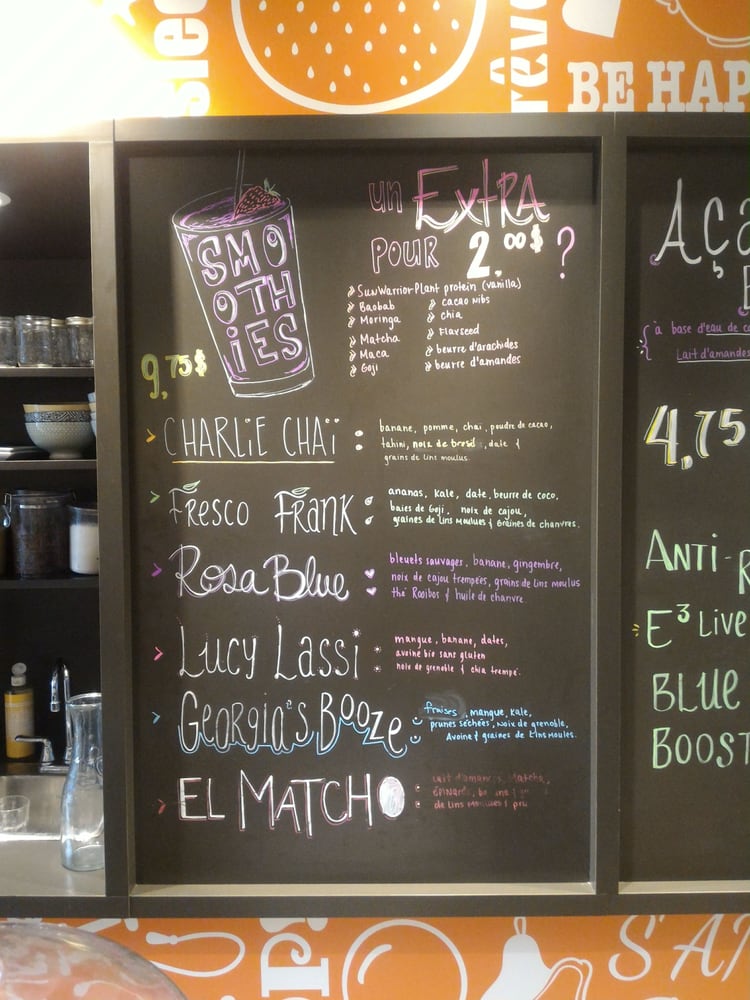 rêve
BE HAP
SMO
OTH
iES
un Extra
pour 2,00$ ?
SunWarrior Plant protein (vanilla)
Baobab
cacao nibs
Moringa
chia
Matcha
Flaxseed
Maca
beurre d'arachides
Goji
beurre d'amandes
9,75$
CHARLiE CHAï :
banane, pomme, chaï, poudre de cacao,
tahini, noix de brésil, date &
grains de lins moulus.
Fresco Frank
ananas, kale, date, beurre de coco,
baies de Goji, noix de cajou,
graines de lins Moulues & Graines de chanvres.
Rosa Blue
bleuets sauvages, banane, gingembre,
noix de cajou trempées, grains de lins moulus
thé Rooibos & huile de chanvre
Lucy Lassi
mangue, banane, dates,
avoine bio sans gluten
noix de grenoble & chia trempé.
Georgia's Booze
fraises, mangue, kale,
prunes séchées, noix de grenoble,
Avoine & graines de Lins Moules.
EL MATCHO :
Lait d'amandes, Matcha,
ÉPINARDS,
de Lins Moulues &
AÇa
à base d'eau de co
Lait d'amandes
4,75
ANTi-R
E3 Live
BLUE
BOOST